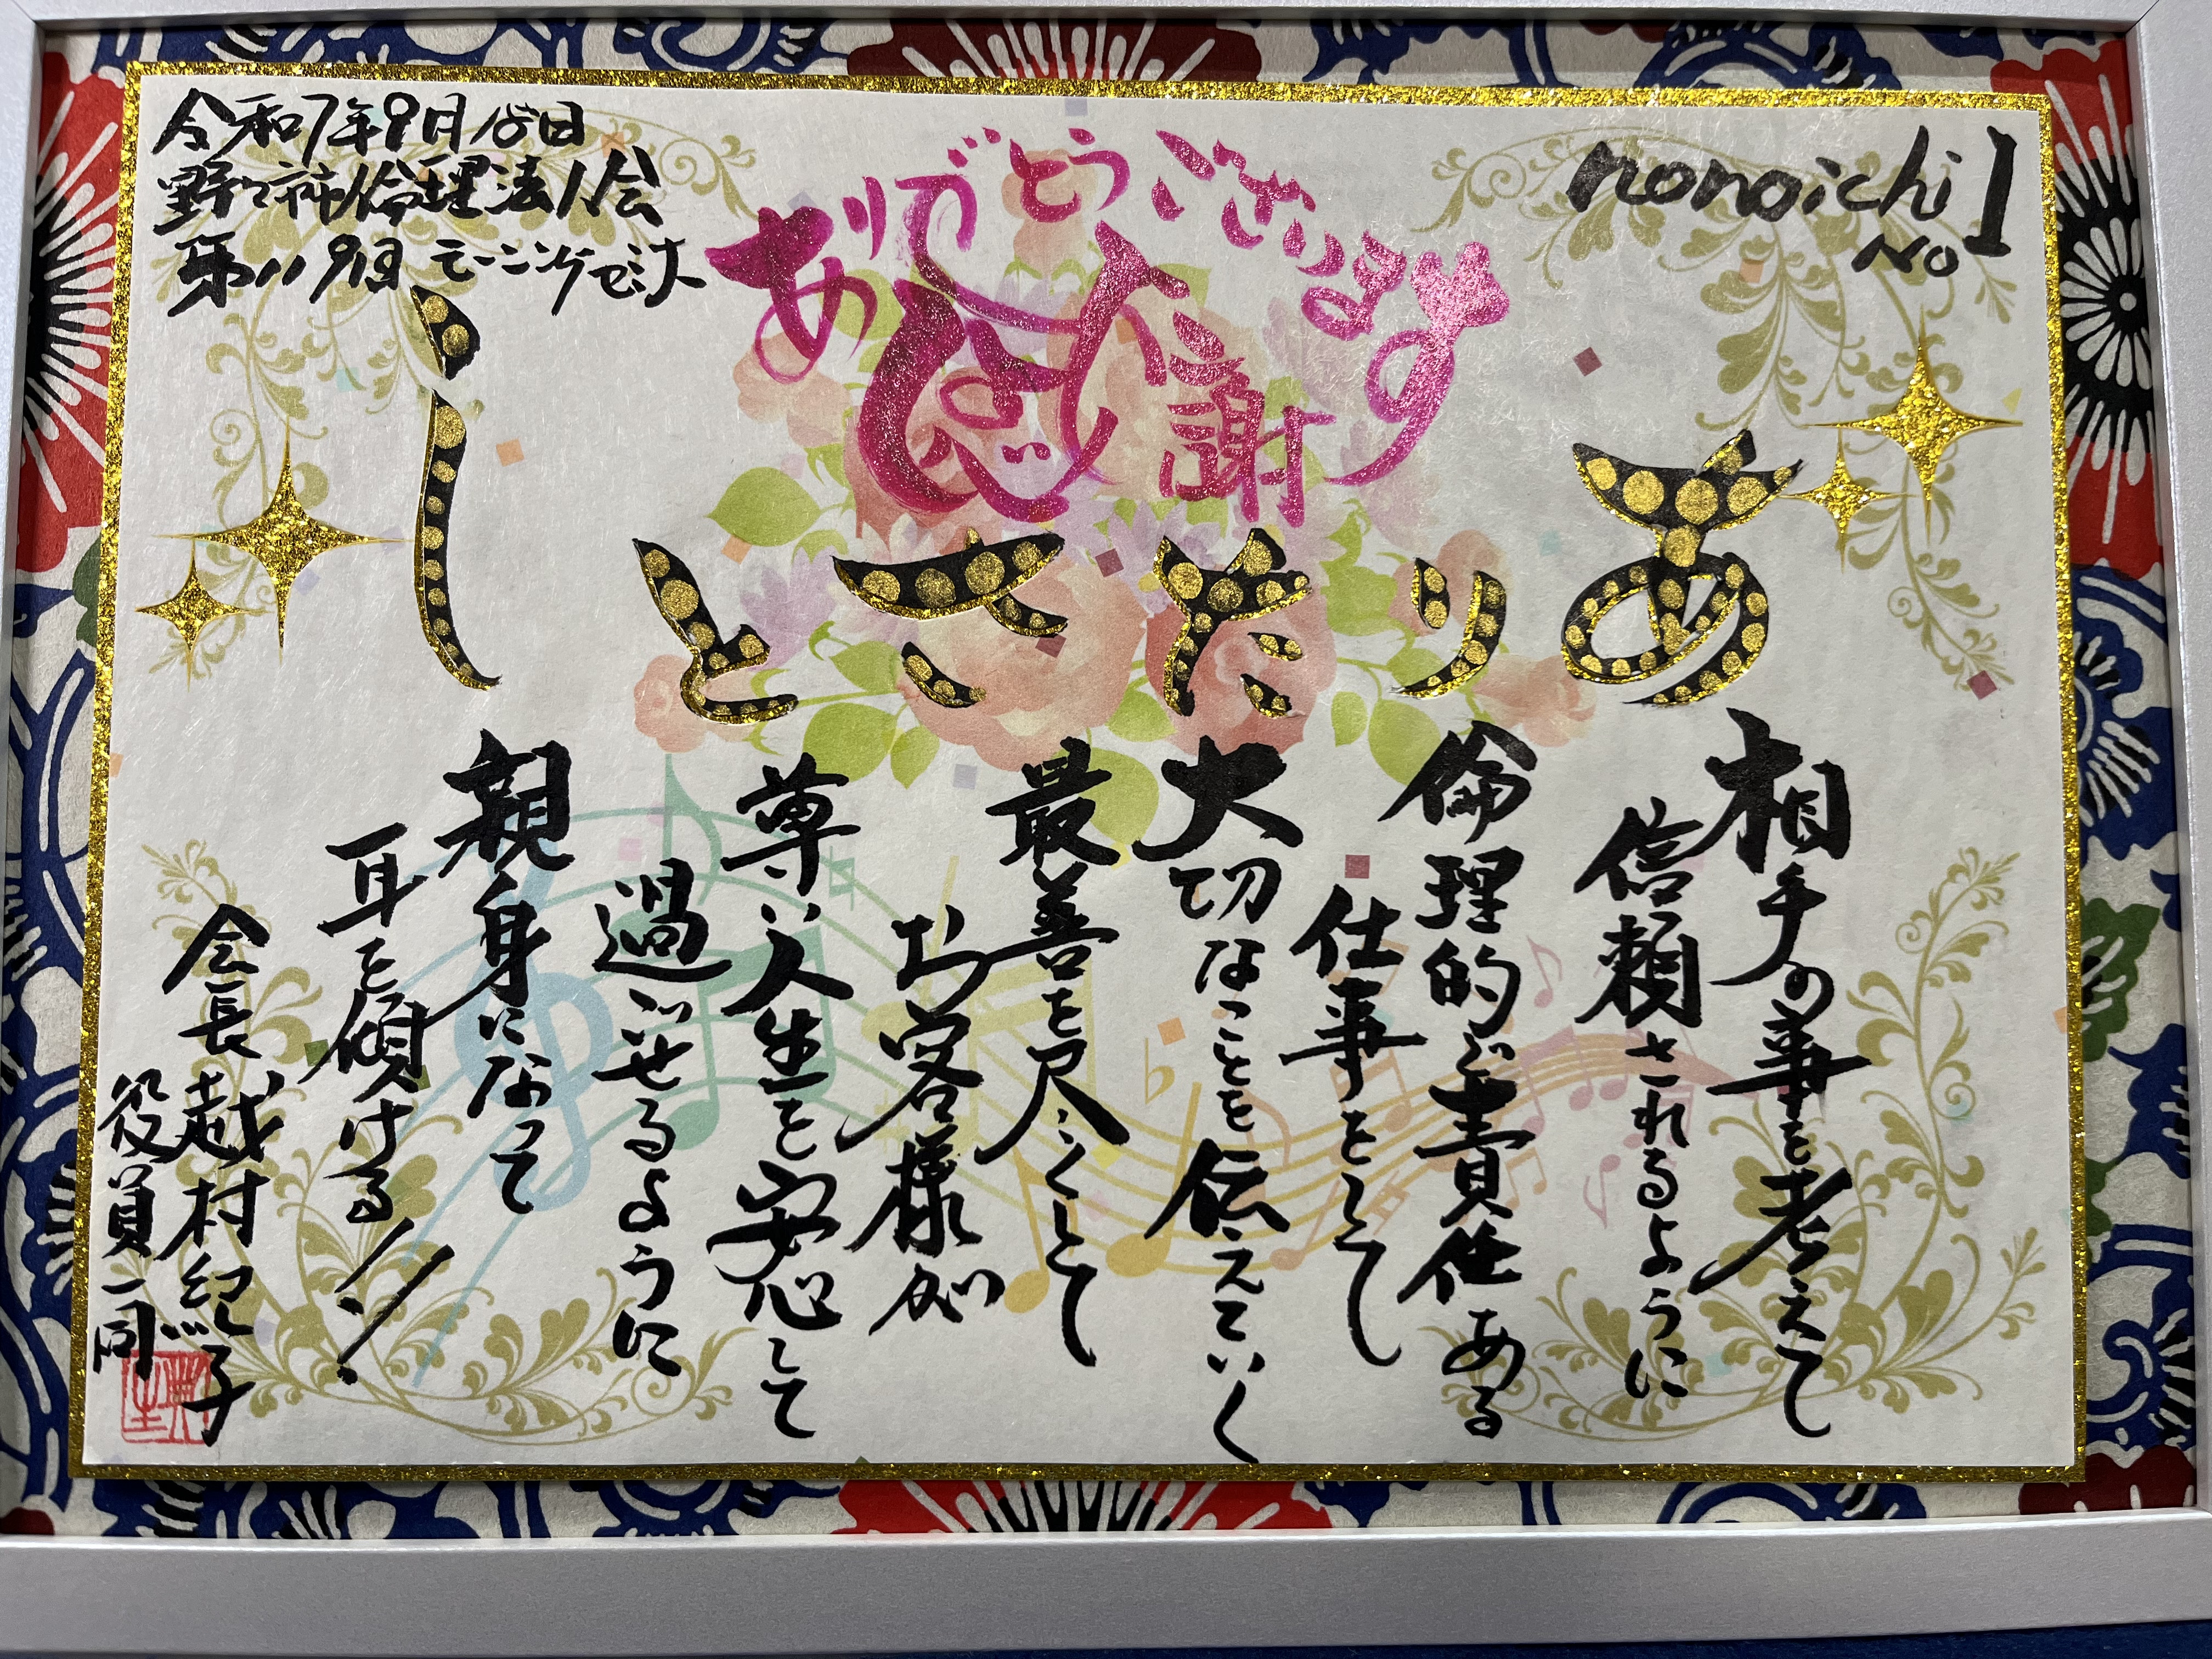 令和7年9月18日
野々市倫理法人会
第119回 モーニングセミナー
nonoichi
No 1
ありがとうございます
感謝
ありたさとし
相手の事を考えて
信頼されるように
倫理的で責任ある
仕事をして
大切なことを伝えていく
最善を尽くして
お客様が
尊い人生を安心して
過ごせるように
親身になって
耳を傾ける!!
会長 越村紀子
役員一同